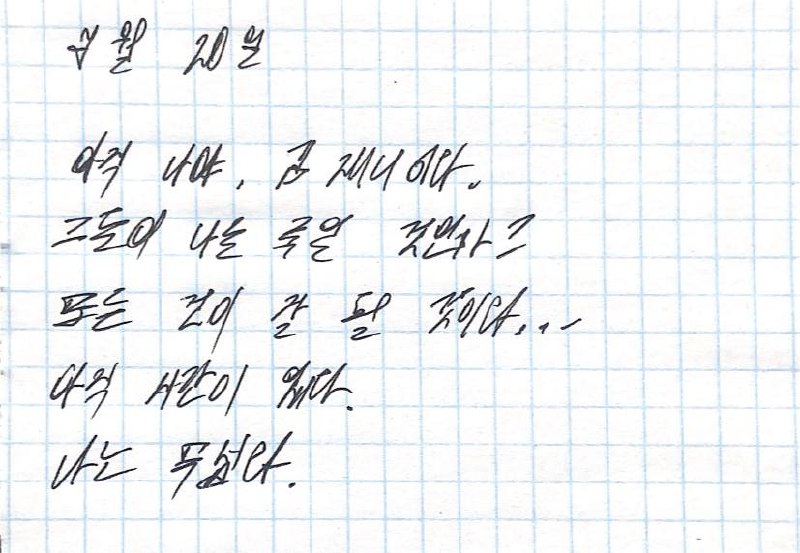 7월 20일
아직 나야. 김 제니이다.
그들이 나를 죽일 것인가?
모든 것이 잘 될 것이다...
아직 시간이 있다.
나는 무섭다.